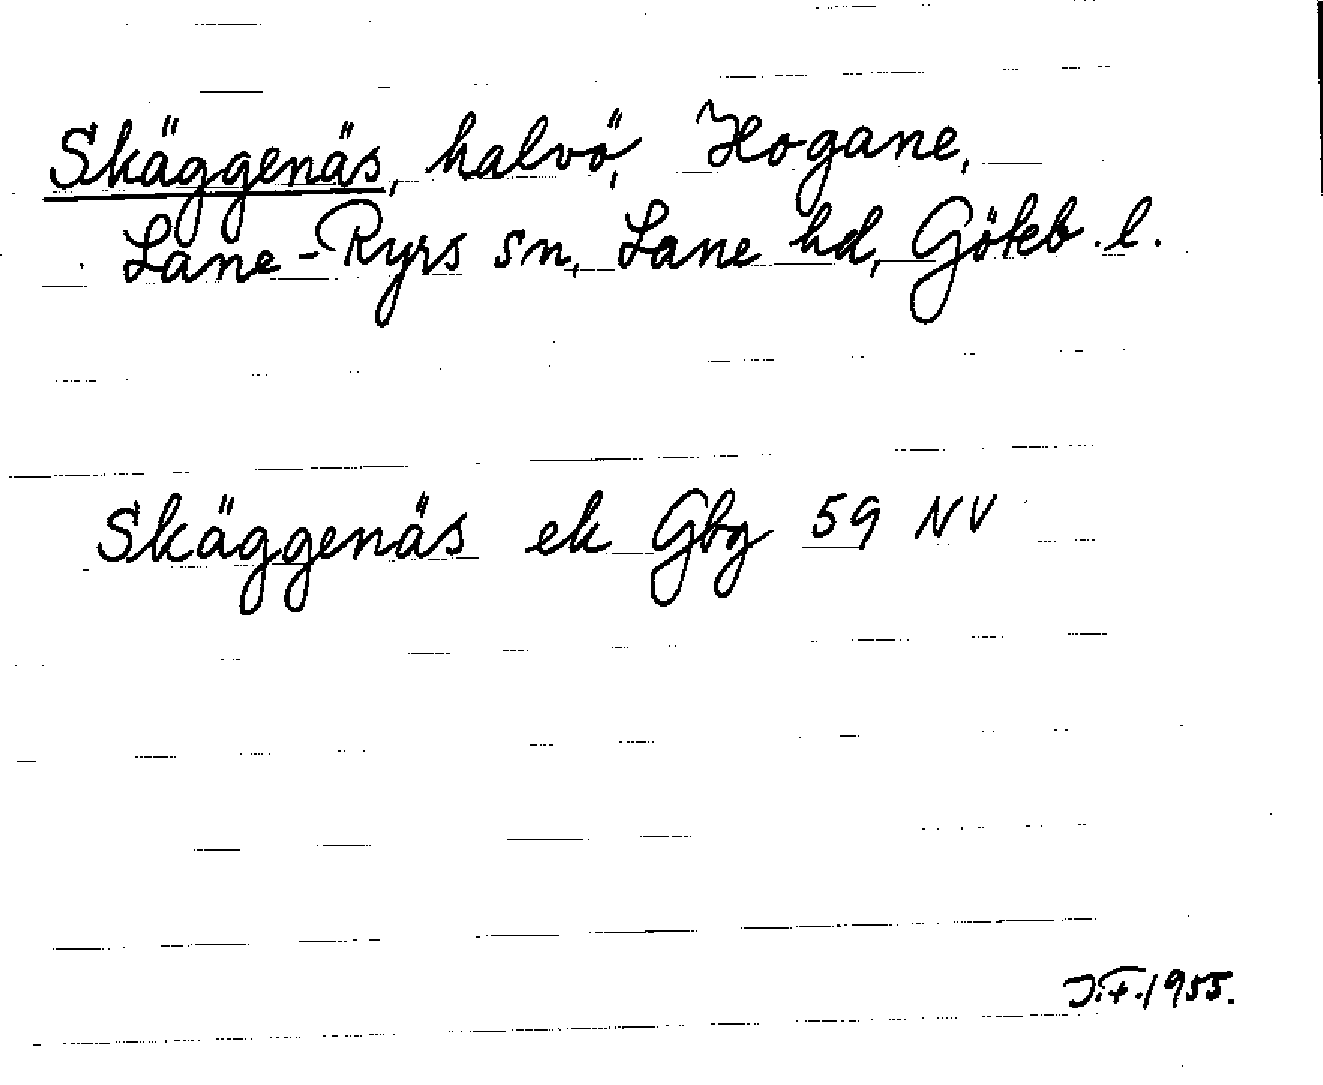 Skäggenäs, halvö, Hogane,
Lane-Ryrs sn, Lane hd, Göteb. l.
Skäggenäs ek Gbg 59 NV
J.F. 1955.